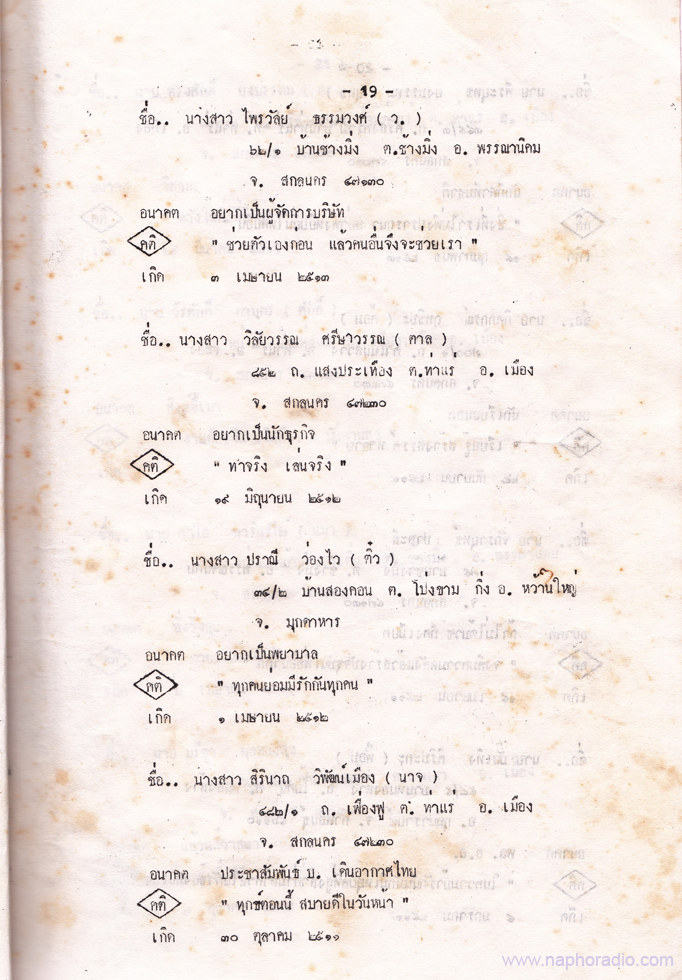 - 19 -
ชื่อ.. นางสาว ไพรวัลย์ ธรรมวงศ์ ( ว. )
๖๒/๑ บ้านช้างมิ่ง ต.ช้างมิ่ง อ. พรรณานิคม
จ. สกลนคร ๔๗๑๓๐
อนาคต อยากเป็นผู้จัดการบริษัท
คติ " ช่วยตัวเองก่อน แล้วคนอื่นจึงจะช่วยเรา "
เกิด ๓ เมษายน ๒๕๑๓
ชื่อ.. นางสาว วิลัยวรรณ ศรีษาวรรณ ( ตาล )
๘๕๒ ถ. แสงประเทือง ต.ท่าแร่ อ. เมือง
จ. สกลนคร ๔๗๒๓๐
อนาคต อยากเป็นนักธุรกิจ
คติ " ทำจริง เล่นจริง "
เกิด ๑๙ มิถุนายน ๒๕๑๒
ชื่อ.. นางสาว ปราณี ว่องไว ( ติ๋ว )
๓๔/๒ บ้านสองคอน ต. โป่งขาม กิ่ง อ. หว้านใหญ่
จ. มุกดาหาร
อนาคต อยากเป็นพยาบาล
คติ " ทุกคนย่อมมีรักกันทุกคน "
เกิด ๑ เมษายน ๒๕๑๒
ชื่อ.. นางสาว สิรินาถ วิพัฒน์เมือง ( นาจ )
๔๘๒/๑ ถ. เฟื่องฟู ต. ท่าแร่ อ. เมือง
จ. สกลนคร ๔๗๒๓๐
อนาคต ประชาสัมพันธ์ บ. เดินอากาศไทย
คติ " ทุกข์ตอนนี้ สบายดีในวันหน้า "
เกิด ๓๐ ตุลาคม ๒๕๑๑
www.naphoradio.com